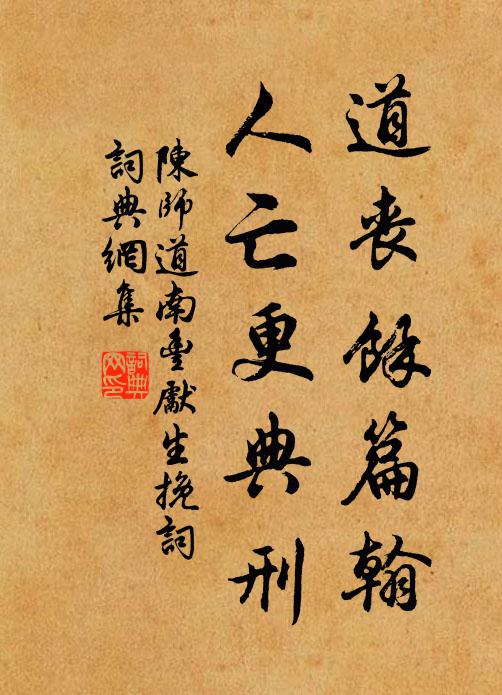 道丧餘篇翰
人亡更典刑
陳師道南豐獻生挽詞
詞典網集
詞典
网印